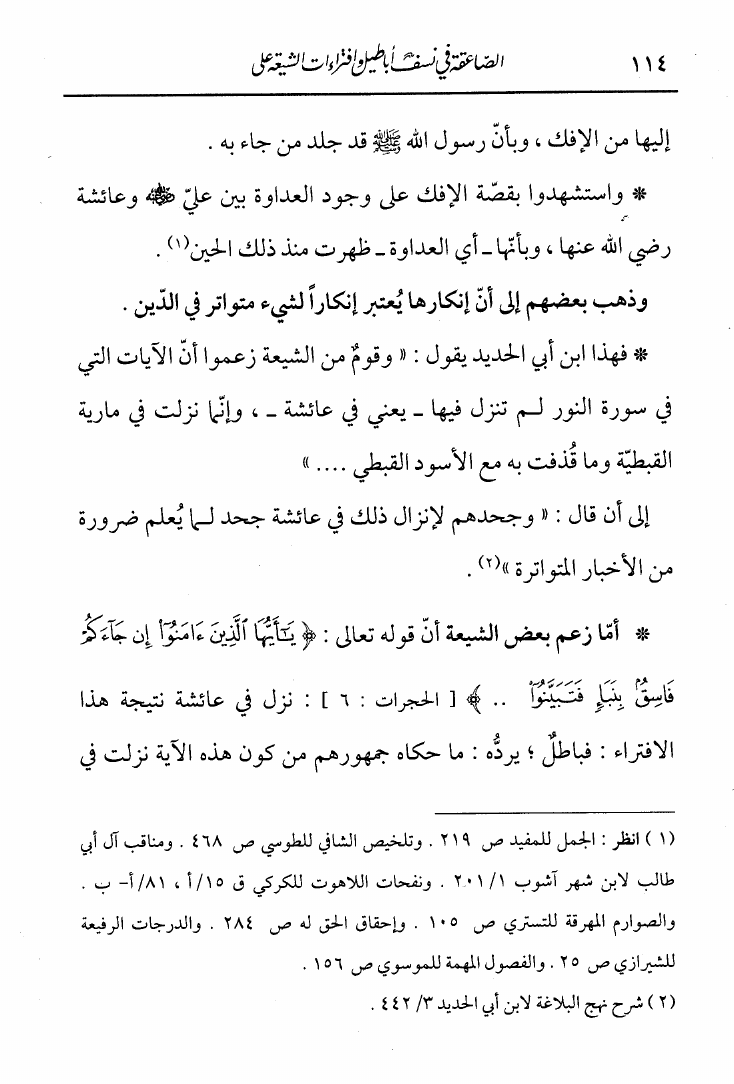 ١١٤ الصّاعقة في نسف أباطيل وافتراءات الشيعة على
إليها من الإفك ، وبأنّ رسول الله ﷺ قد جلد من جاء به .
* واستشهدوا بقصّة الإفك على وجود العداوة بين عليّ وعائشة
رضي الله عنها ، وبأنّها ـ أي العداوة ـ ظهرت منذ ذلك الحين(١) .
وذهب بعضهم إلى أنّ إنكارها يُعتبر إنكاراً لشيء متواتر في الدّين .
* فهذا ابن أبي الحديد يقول : « وقومٌ من الشيعة زعموا أنّ الآيات التي
في سورة النور لـم تنزل فيها ـ يعني في عائشة ـ ، وإنّما نزلت في مارية
القبطيّة وما قُذفت به مع الأسود القبطي .... »
إلى أن قال : « وجحدهم لإنزال ذلك في عائشة جحد لـما يُعلم ضرورة
من الأخبار المتواترة »(٢) .
* أمّا زعم بعض الشيعة أنّ قوله تعالى : ﴿ يَـٰٓأَيُّهَا ٱلَّذِينَ ءَامَنُوٓا۟ إِن جَآءَكُمْ
فَاسِقٌۢ بِنَبَإٍ فَتَبَيَّنُوٓا۟ .. ﴾ [ الحجرات : ٦ ] : نزل في عائشة نتيجة هذا
الافتراء : فباطلٌ ؛ يردُّه : ما حكاه جمهورهم من كون هذه الآية نزلت في
(١) انظر : الجمل للمفيد ص ٢١٩ . وتلخيص الشافي للطوسي ص ٤٦٨ . ومناقب آل أبي
طالب لابن شهر آشوب ٢٠١/١ . ونفحات اللاهوت للكركي ق ١٥/أ ، ٨١/أ- ب .
والصوارم المهرقة للتستري ص ١٠٥ . وإحقاق الحق له ص ٢٨٤ . والدرجات الرفيعة
للشيرازي ص ٢٥ . والفصول المهمة للموسوي ص ١٥٦ .
(٢) شرح نهج البلاغة لابن أبي الحديد ٣/ ٤٤٢ .